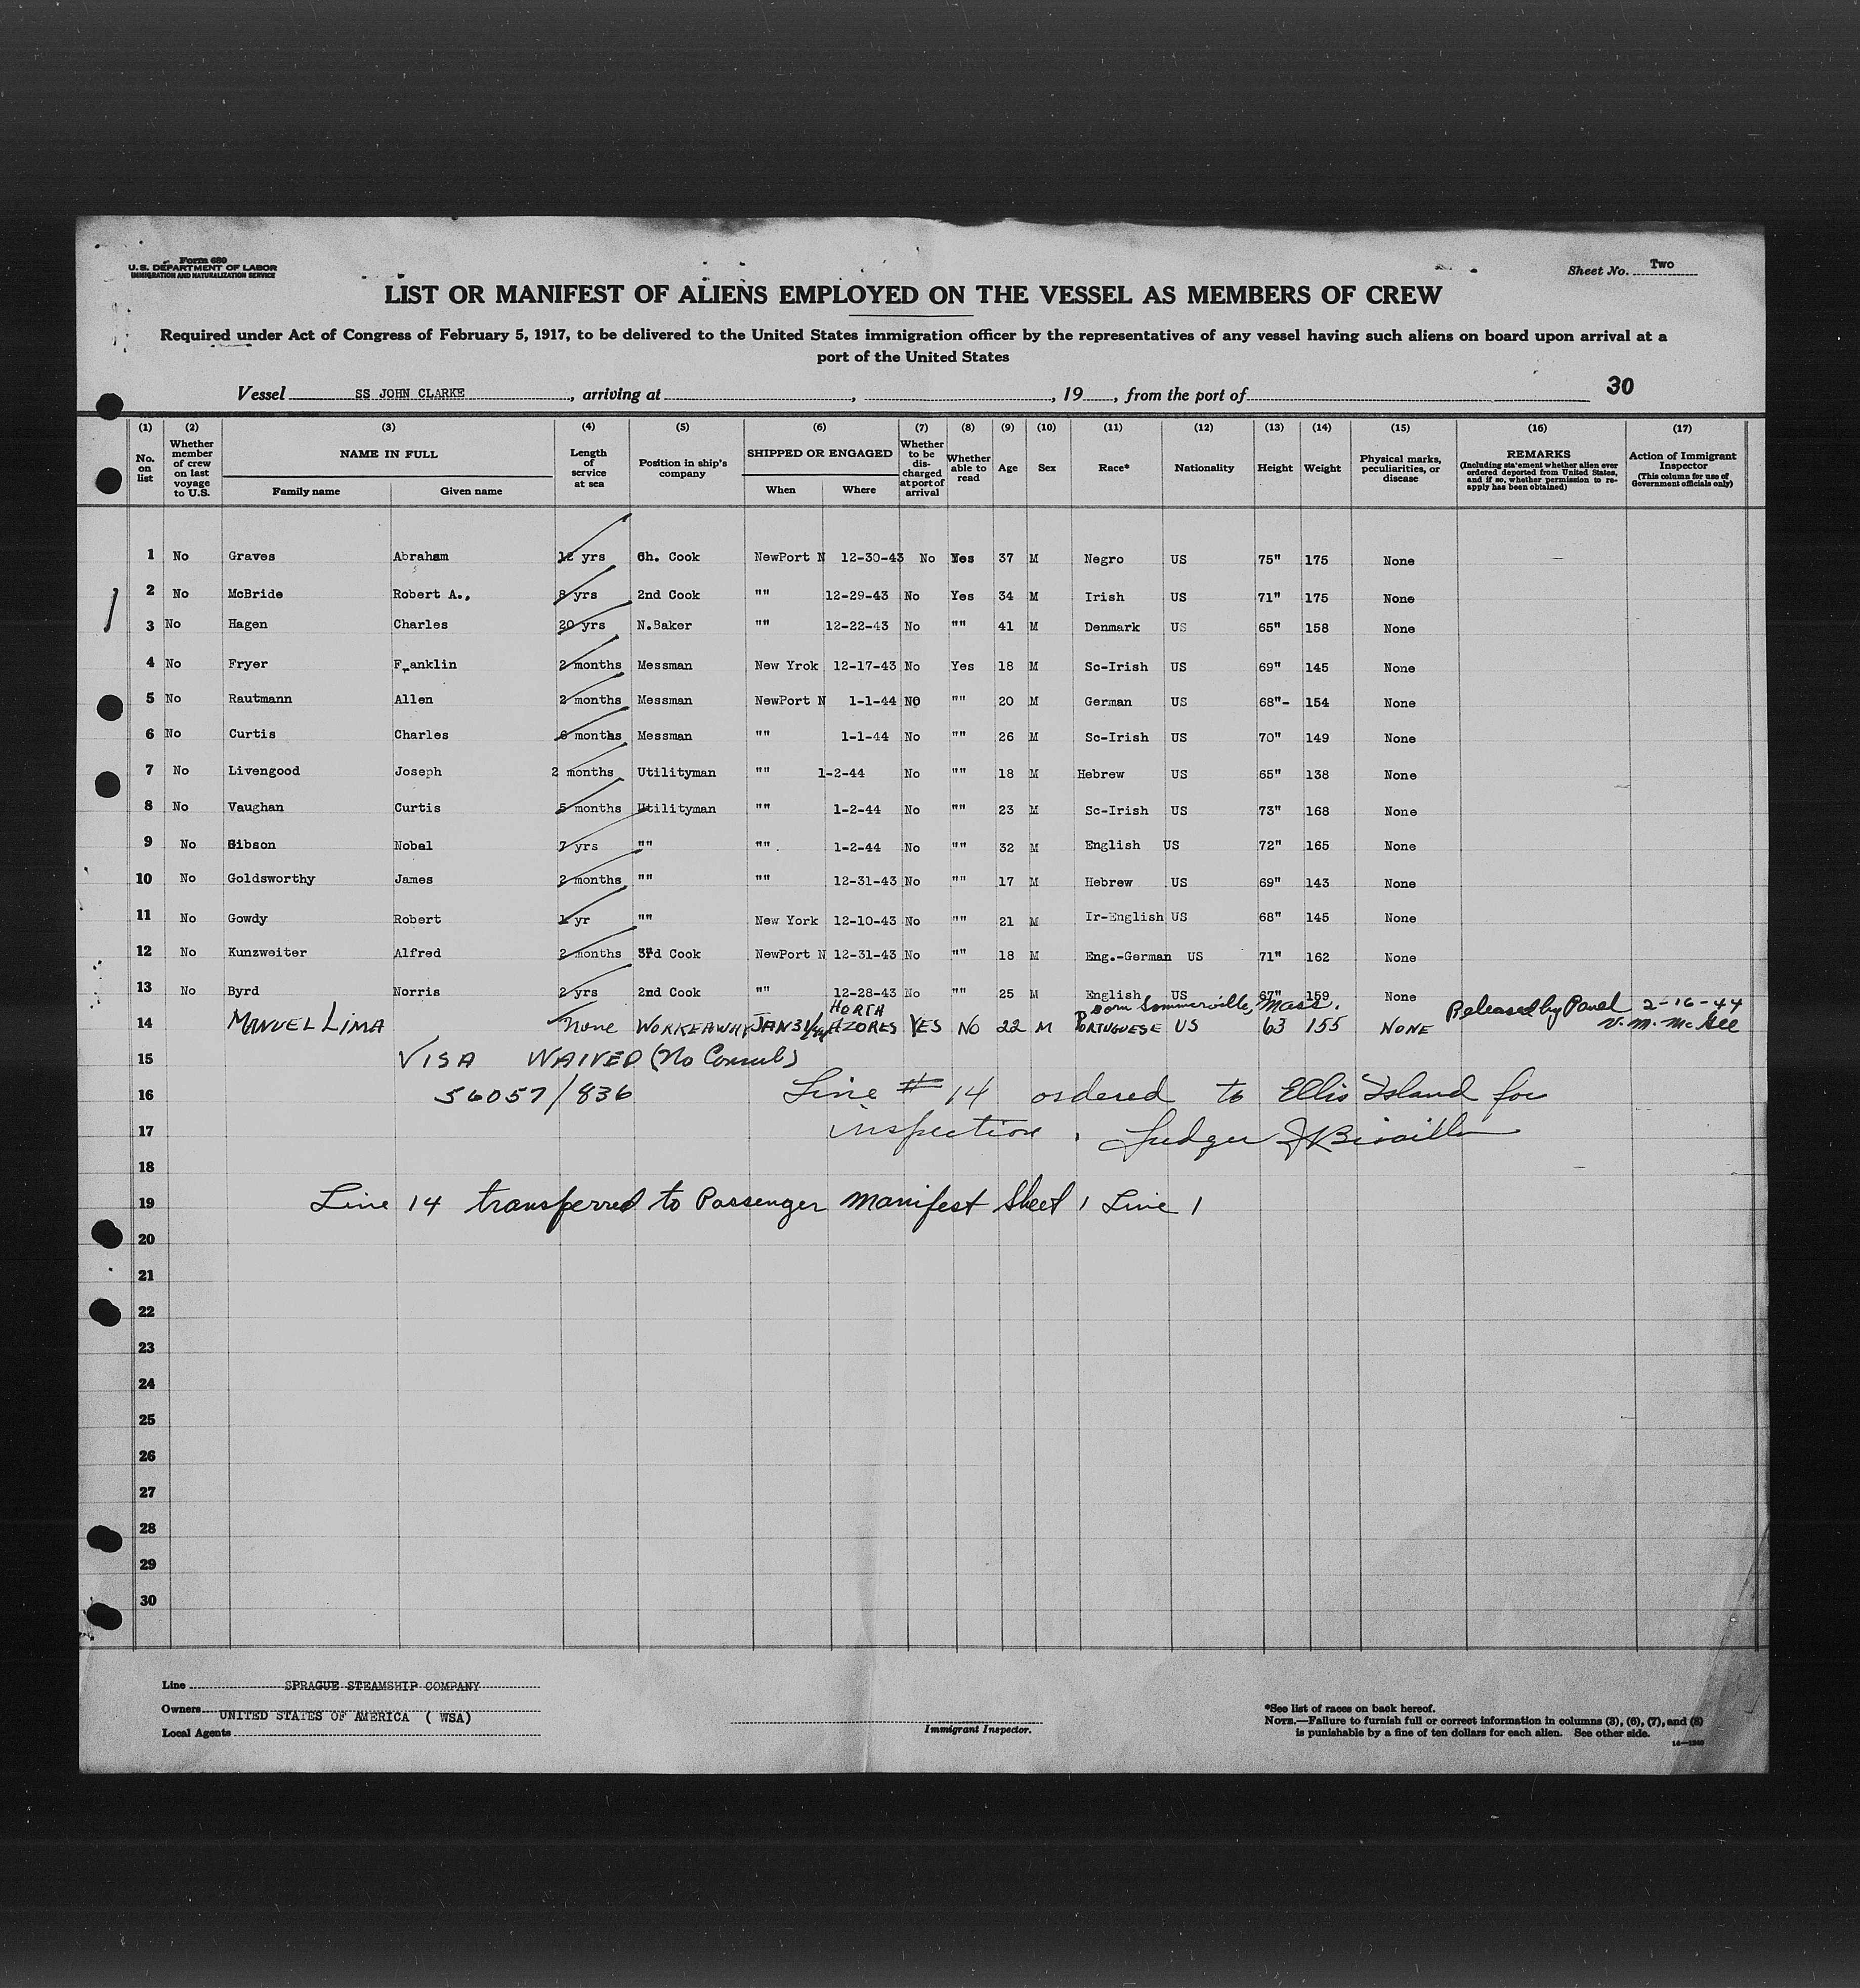 Form 680
U.S. DEPARTMENT OF LABOR
IMMIGRATION AND NATURALIZATION SERVICE
Sheet No. Two
LIST OR MANIFEST OF ALIENS EMPLOYED ON THE VESSEL AS MEMBERS OF CREW
Required under Act of Congress of February 5, 1917, to be delivered to the United States immigration officer by the representatives of any vessel having such aliens on board upon arrival at a
port of the United States
Vessel SS JOHN CLARKE, arriving at , , 19 , from the port of 30
(1) (2) (3) (4) (5) (6) (7) (8) (9) (10) (11) (12) (13) (14) (15) (16) (17)
No. on list
Whether member of crew on last voyage to U.S.
NAME IN FULL
Family name Given name
Length of service at sea
Position in ship's company
SHIPPED OR ENGAGED
When Where
Whether to be discharged at port of arrival
Whether able to read
Age
Sex
Race*
Nationality
Height
Weight
Physical marks, peculiarities, or disease
REMARKS
(Including statement whether alien ever ordered deported from United States, and if so, whether permission to re-apply has been obtained)
Action of Immigrant Inspector
(This column for use of Government officials only)
1 No Graves Abraham 12 yrs Ch. Cook NewPort N 12-30-43 No Yes 37 M Negro US 75" 175 None
2 No McBride Robert A., 8 yrs 2nd Cook "" 12-29-43 No Yes 34 M Irish US 71" 175 None
3 No Hagen Charles 20 yrs N.Baker "" 12-22-43 No "" 41 M Denmark US 65" 158 None
4 No Fryer Franklin 2 months Messman New Yrok 12-17-43 No Yes 18 M Sc-Irish US 69" 145 None
5 No Rautmann Allen 2 months Messman NewPort N 1-1-44 NO "" 20 M German US 68"- 154 None
6 No Curtis Charles 6 months Messman "" 1-1-44 No "" 26 M Sc-Irish US 70" 149 None
7 No Livengood Joseph 2 months Utilityman "" 1-2-44 No "" 18 M Hebrew US 65" 138 None
8 No Vaughan Curtis 5 months Utilityman "" 1-2-44 No "" 23 M Sc-Irish US 73" 168 None
9 No Gibson Nobel 7 yrs "" "" 1-2-44 No "" 32 M English US 72" 165 None
10 No Goldsworthy James 2 months "" "" 12-31-43 No "" 17 M Hebrew US 69" 143 None
11 No Gowdy Robert 1 yr "" New York 12-10-43 No "" 21 M Ir-English US 68" 145 None
12 No Kunzweiter Alfred 2 months 3rd Cook NewPort N 12-31-43 No "" 18 M Eng.-German US 71" 162 None
13 No Byrd Norris 2 yrs 2nd Cook "" 12-28-43 No "" 25 M English US 67" 159 None
HORTA Born Sommerville, Mass. Released by Panel 2-16-44
14 MANUEL LIMA None WORKEAWAY JAN 31/44 AZORES YES NO 22 M PORTUGUESE US 63 155 NONE V. M. McGee
15 VISA WAIVED (No Consul)
16 56057/836 Line # 14 ordered to Ellis Island for
17 inspection.
18
19 Line 14 transferred to Passenger Manifest Sheet 1 Line 1
20
21
22
23
24
25
26
27
28
29
30
Line SPRAGUE STEAMSHIP COMPANY
Owners UNITED STATES OF AMERICA ( WSA)
Local Agents
Immigrant Inspector.
*See list of races on back hereof.
NOTE.—Failure to furnish full or correct information in columns (3), (6), (7), and (8)
is punishable by a fine of ten dollars for each alien. See other side.